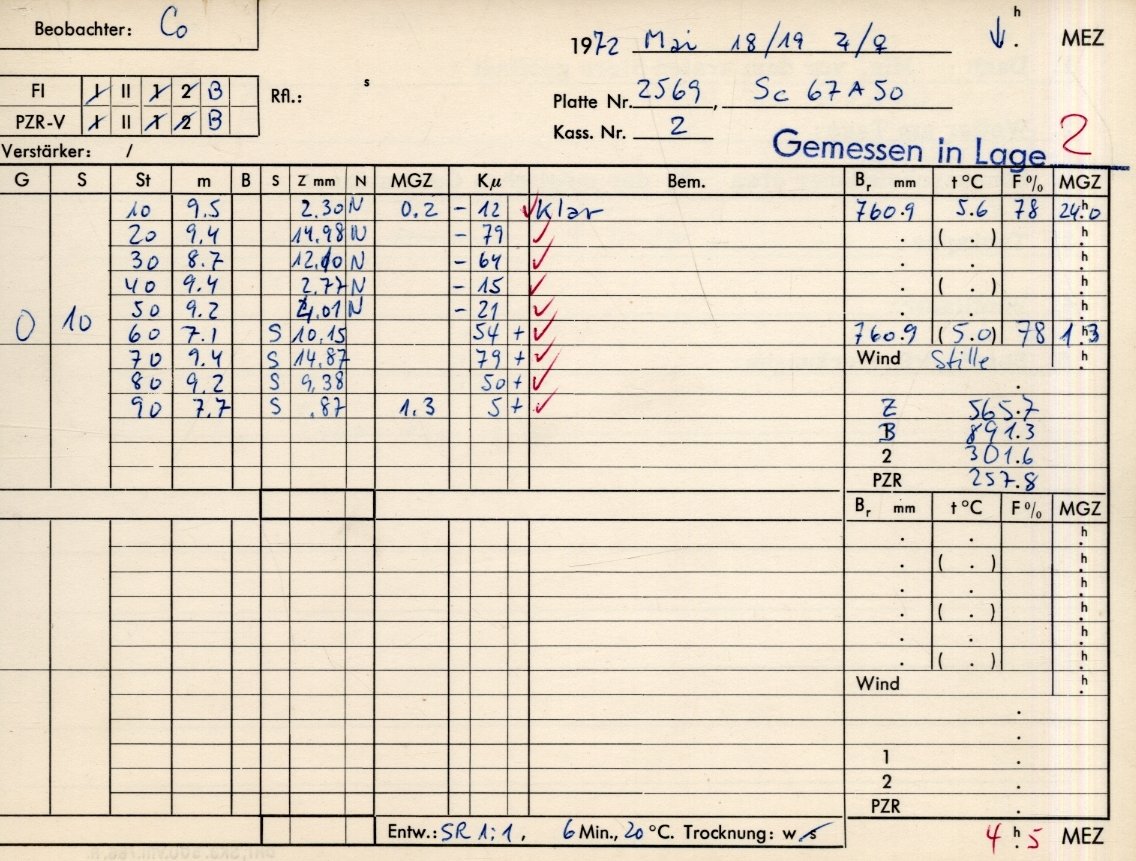 Beobachter: Co
1972 Mai 18/19 h . MEZ
FI 1 II 1 2 B Rfl.: s
Platte Nr. 2569, Sc 67A50
PZR-V 1 II 1 2 B
Kass. Nr. 2
Verstärker: /
Gemessen in Lage 2
G S St m B S Z mm N MGZ Kμ Bem. Br mm t °C F % MGZ
10 9.5 2.30 N 0.2 - 12 ✓ Klar 760.9 5.6 78 24h.0
20 9.4 14.98 N - 79 ✓ . ( . ) h.
30 8.7 12.10 N - 64 ✓ . . h.
40 9.4 2.77 N - 15 ✓ . ( . ) h.
50 9.2 4.01 N - 21 ✓ . . h.
0 10 60 7.1 S 10.15 54 + ✓ 760.9 (5.0) 78 1h.3
70 9.4 S 14.87 79 + ✓ Wind Stille h.
80 9.2 S 9.38 50 + ✓ .
90 7.7 S .87 MGZ 1.3 5 + ✓ Z 565.7
B 891.3
2 301.6
PZR 257.8
Br mm t °C F % MGZ
. . h.
. ( . ) h.
. . h.
. ( . ) h.
. . h.
. ( . ) h.
Wind h.
.
.
1 .
2 .
PZR .
Entw.: SR 1:1, 6 Min., 20 °C. Trocknung: w s 4 h. 5 MEZ